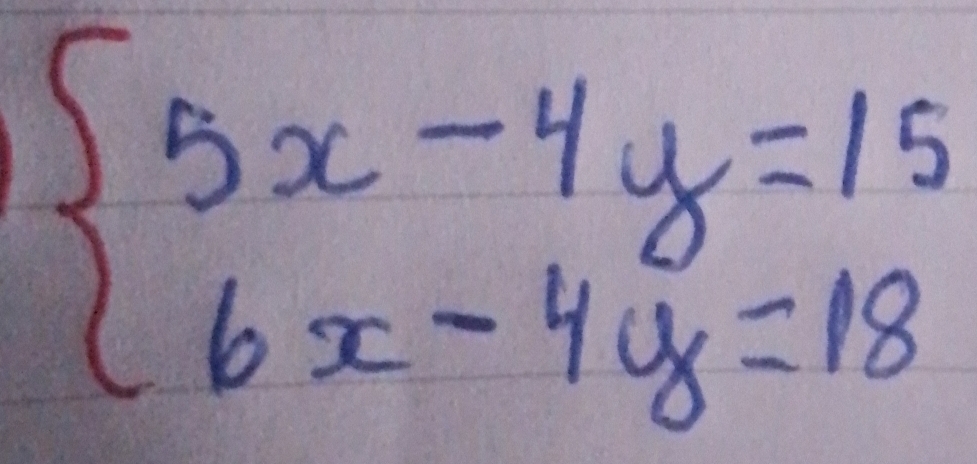 5x - 4y = 15
6x - 4y = 18